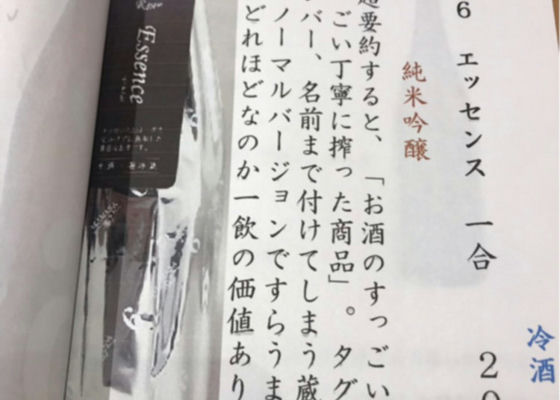 6 エッセンス 一合
20
冷酒
純米吟醸
要約すると、「お酒のすっごい
ごい丁寧に搾った商品」。タグ
バー、名前まで付けてしまう蔵
ノーマルバージョンですらうま
どれほどなのか一飲の価値あり
Essence